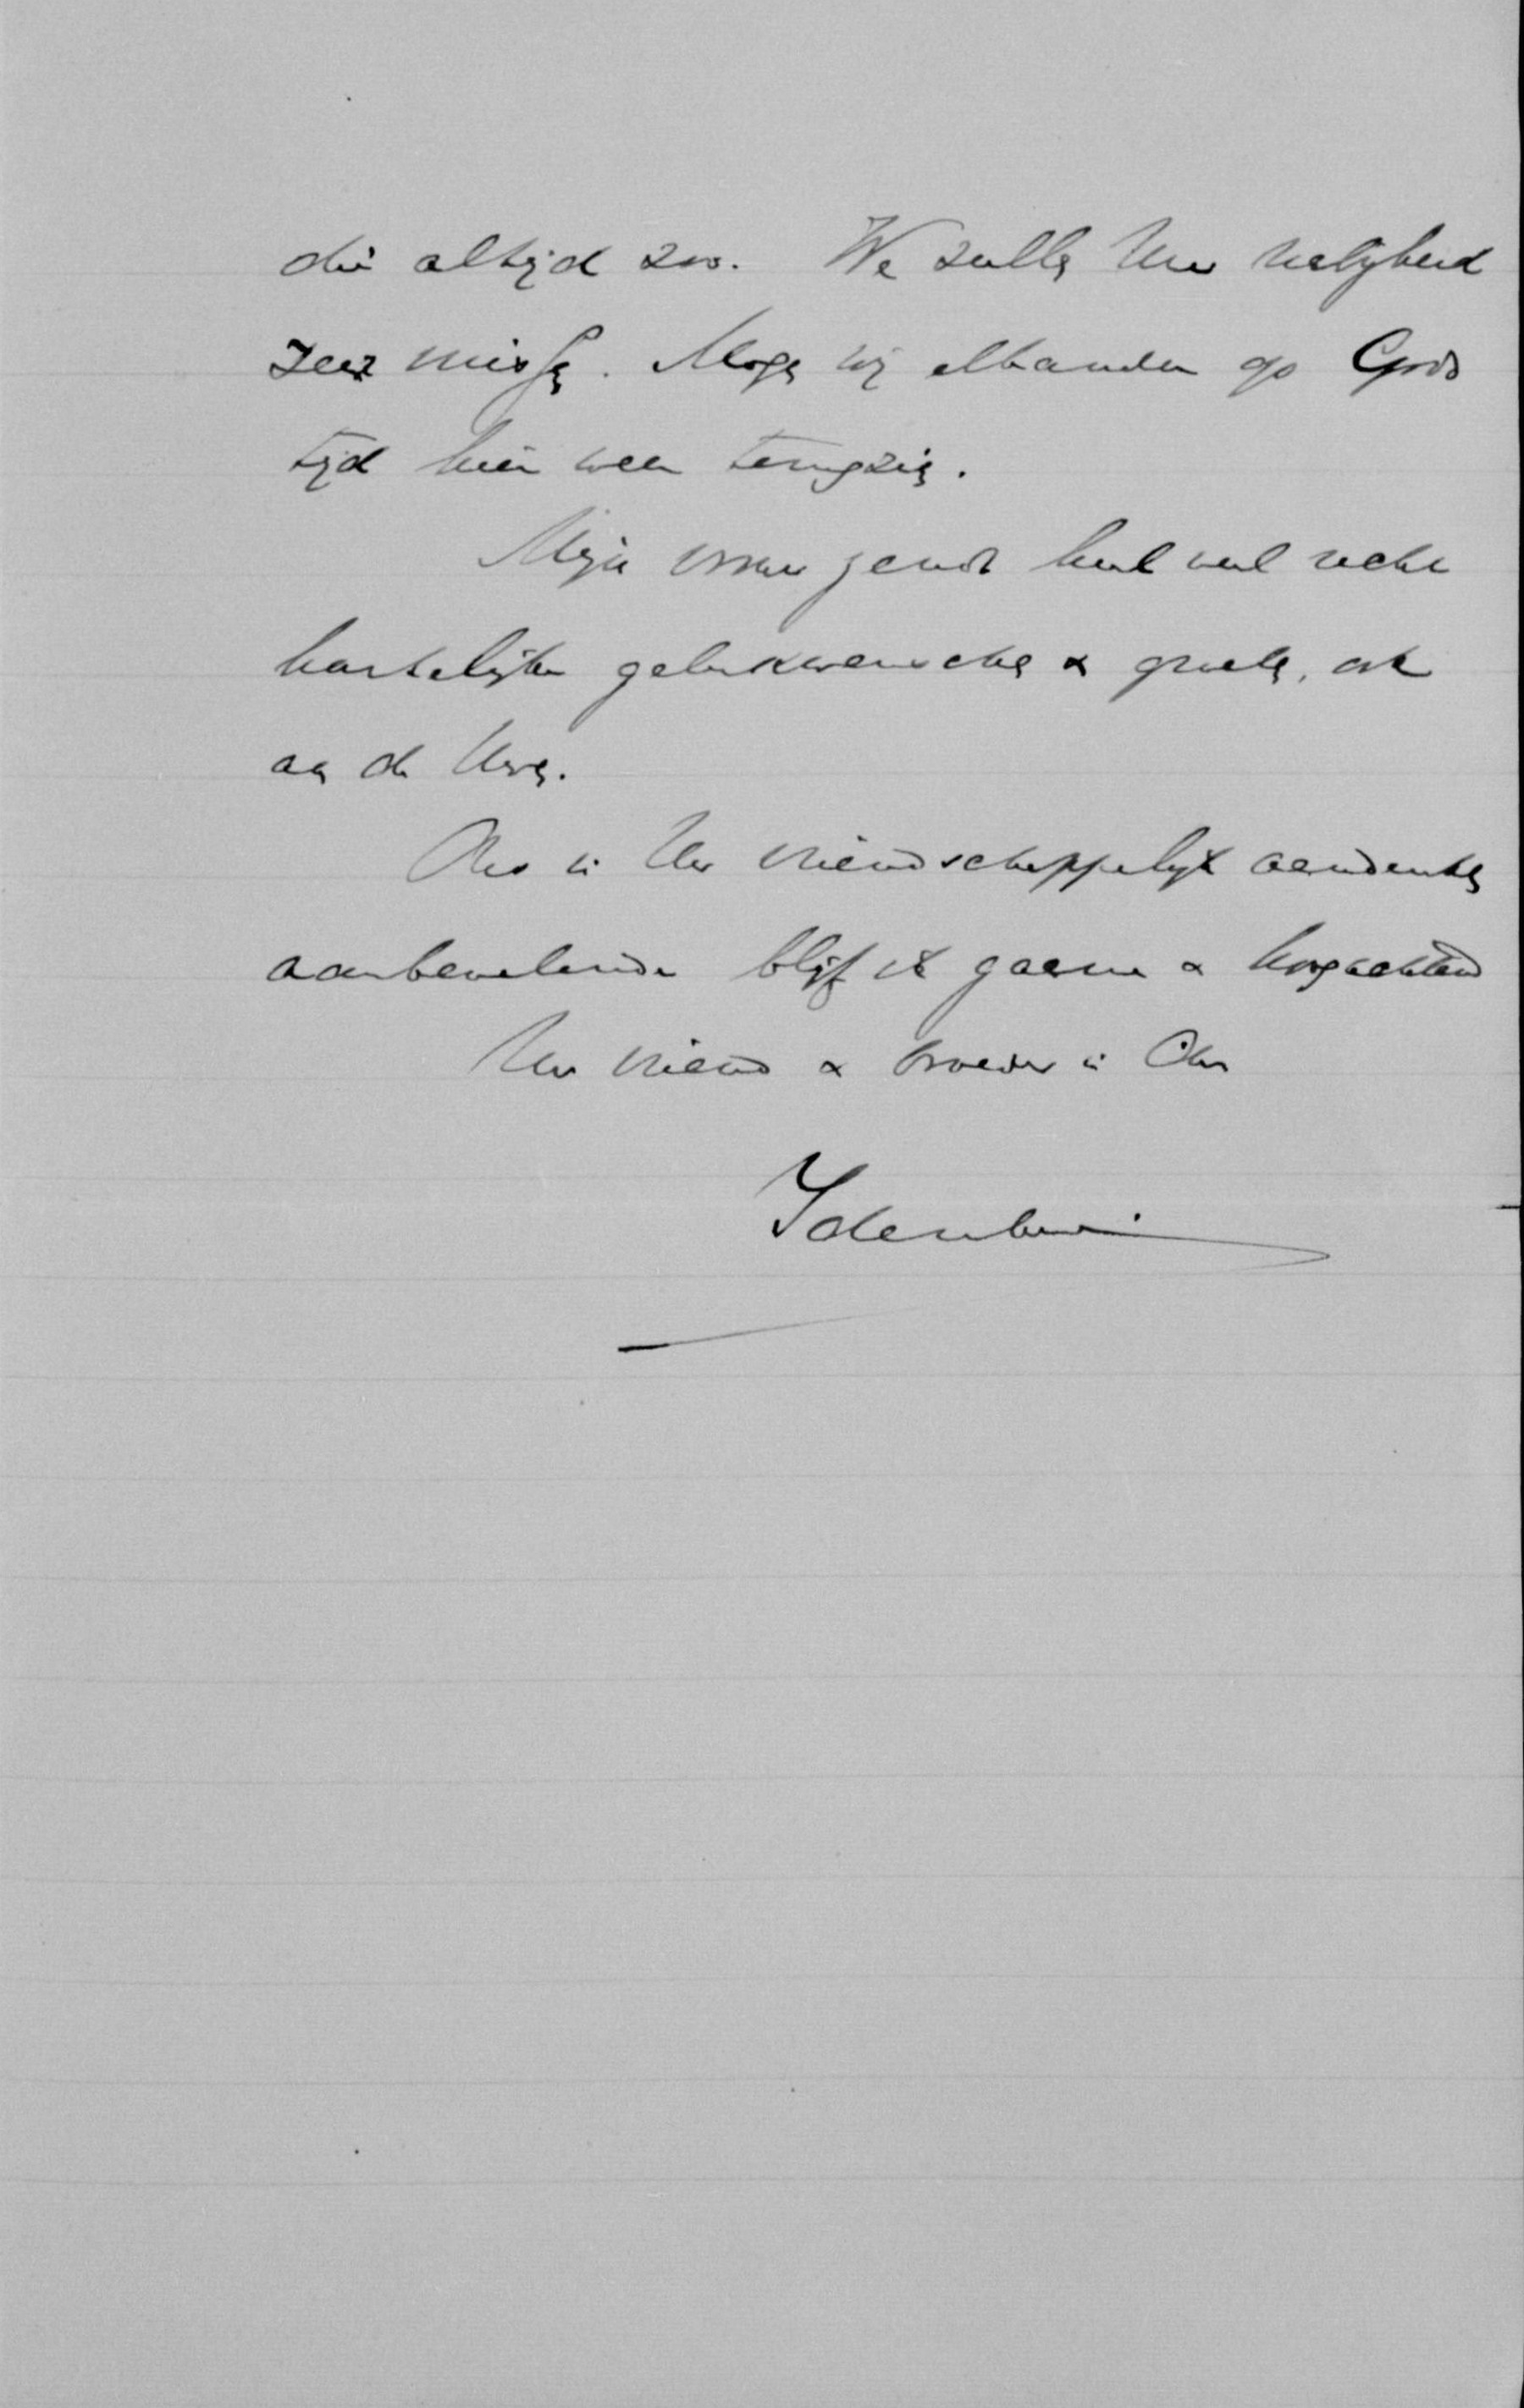 die altijd zoo. We zullen Uw nabijheid
zeer missen. Mogen wij elkander op Gods
tijd hier weer terugzien.
Mijn vrouw zendt heel veel recht
hartelijke gelukwenschen & groeten, ook
aan de Uwen.
Ons in Uw vriendschappelijk aandenken
aanbevelende blijf ik gaarne & hoogachtend
Uw vriend & broeder in Chr
Idenburg